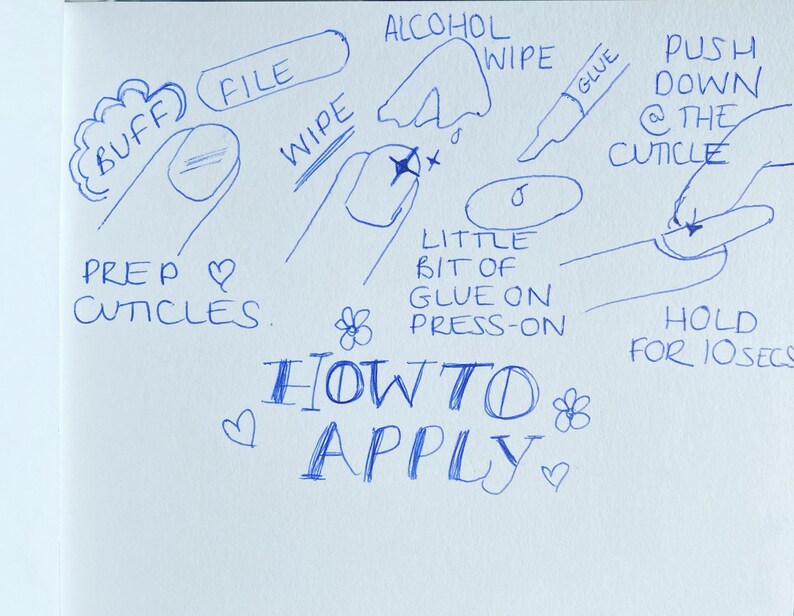 BUFF
FILE
PREP ♡
CUTICLES.
WIPE
ALCOHOL
WIPE
GLUE
LITTLE
BIT OF
GLUE ON
PRESS-ON
PUSH
DOWN
@ THE
CUTICLE
HOLD
FOR 10 SECS
HOW TO
APPLY